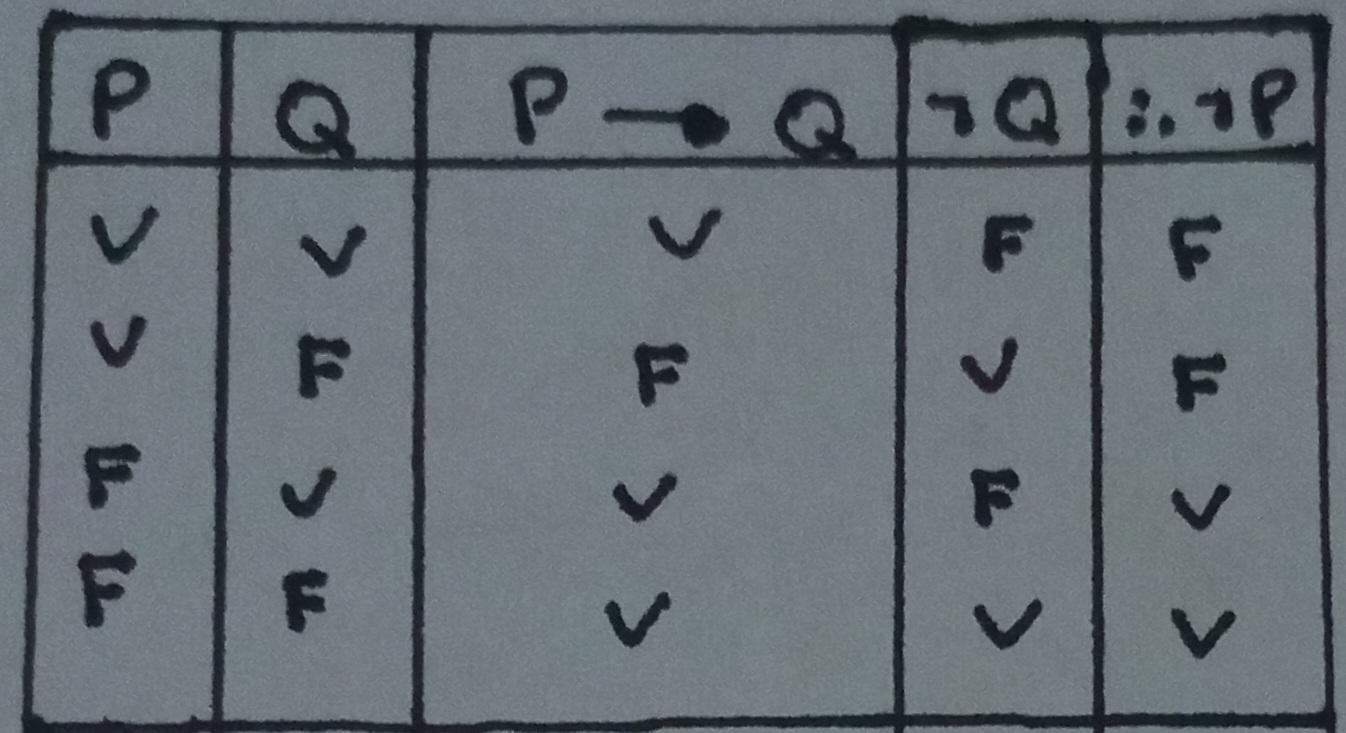 P Q P → Q ¬Q ∴ ¬P
V V V F F
V F F V F
F V V F V
F F V V V